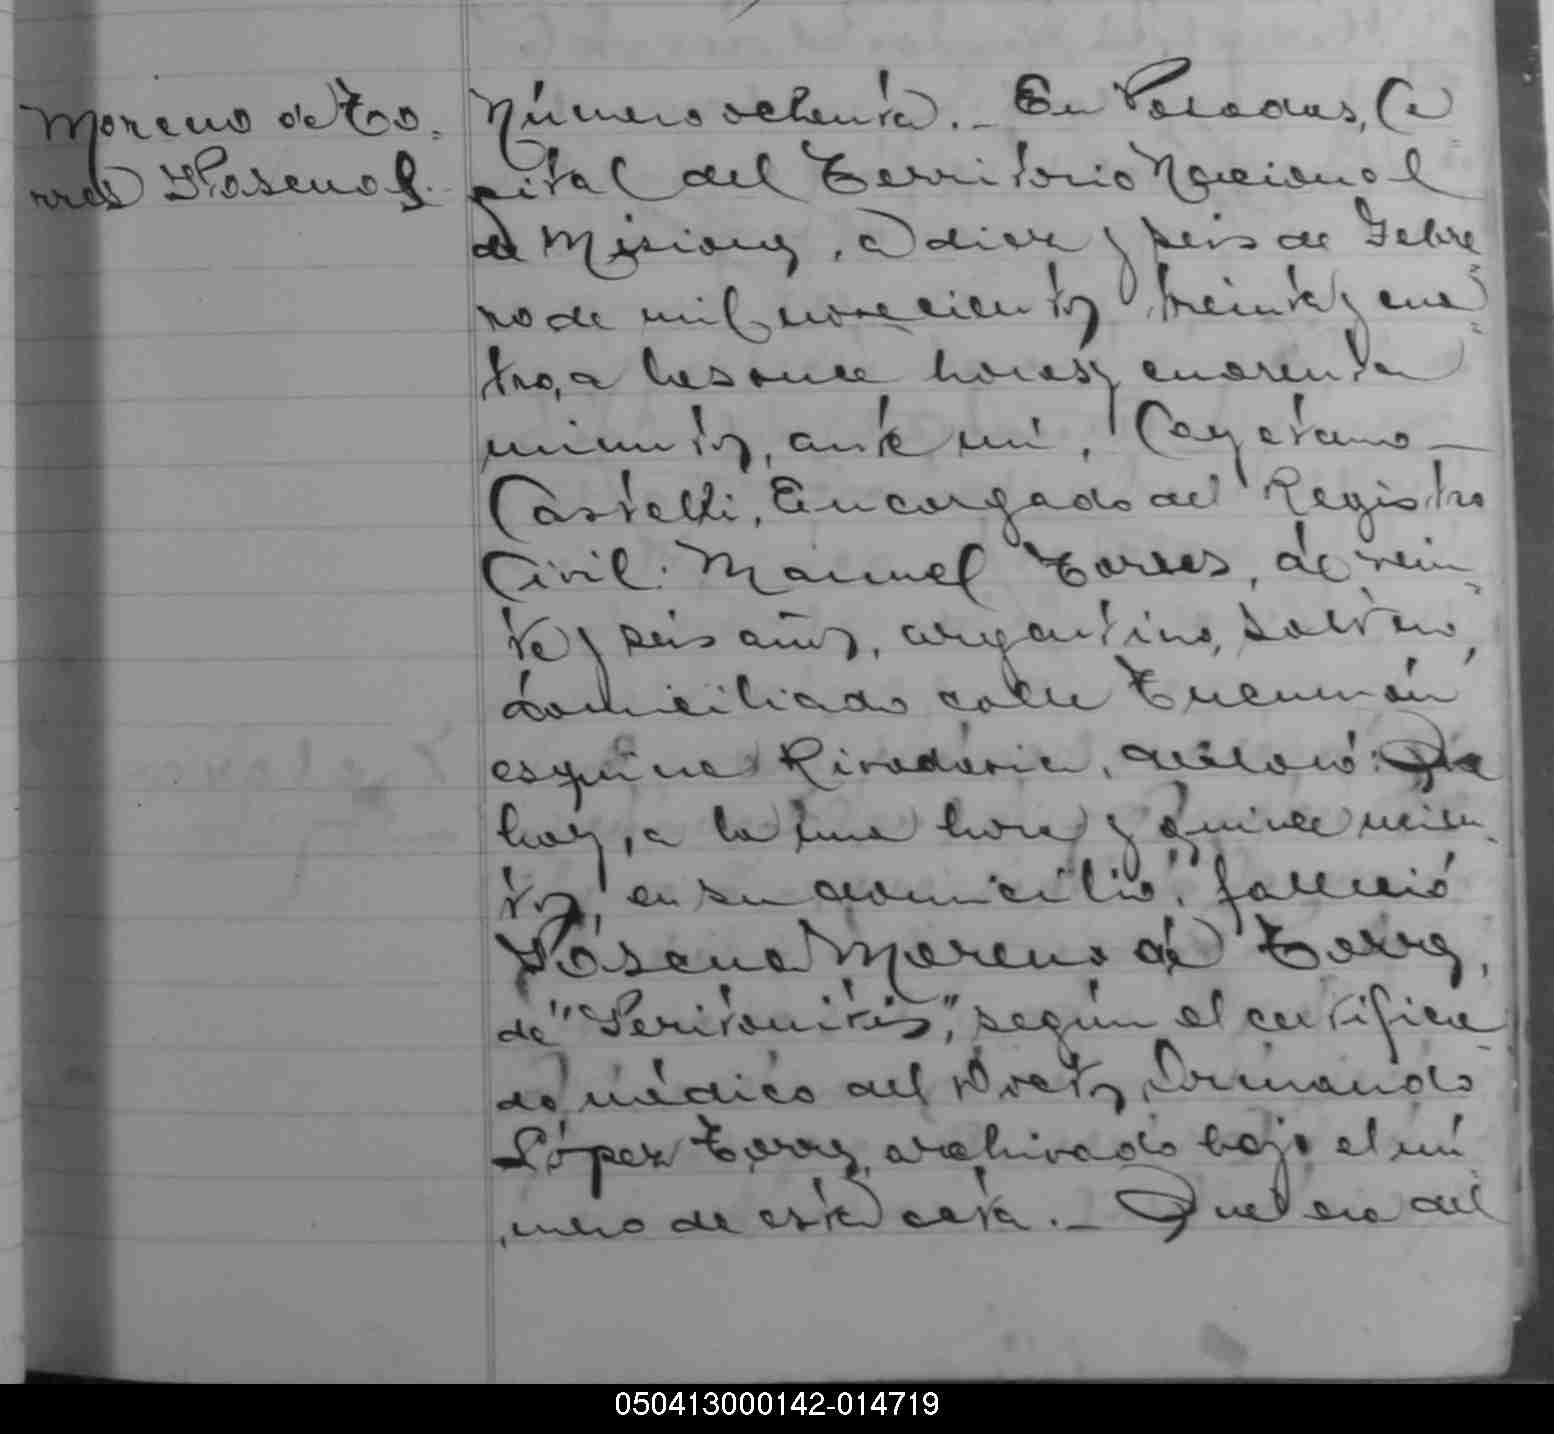 Moreno de To-
rres Rosena S.
Número ochenta. - En Posadas, Ca-
pital del Territorio Nacional
de Misiones, a diez y seis de Febre-
ro de mil novecientos treinta y cua-
tro, a las once horas y cuarenta
minutos, ante mí, Cayetano
Castelli, Encargado del Registro
Civil: Manuel Torres, de vein-
te y seis años, argentino, soltero,
domiciliado calle Tucumán
esquina Rivadavia, declaró: Que
hoy, a la una hora y quince minu-
tos, en su domicilio, falleció
Rosena Moreno de Torres,
de "Peritonitis", según el certifica-
do médico del Doctor Armando
López Torres, archivado bajo el nú-
mero de esta acta. - Que era del
050413000142-014719